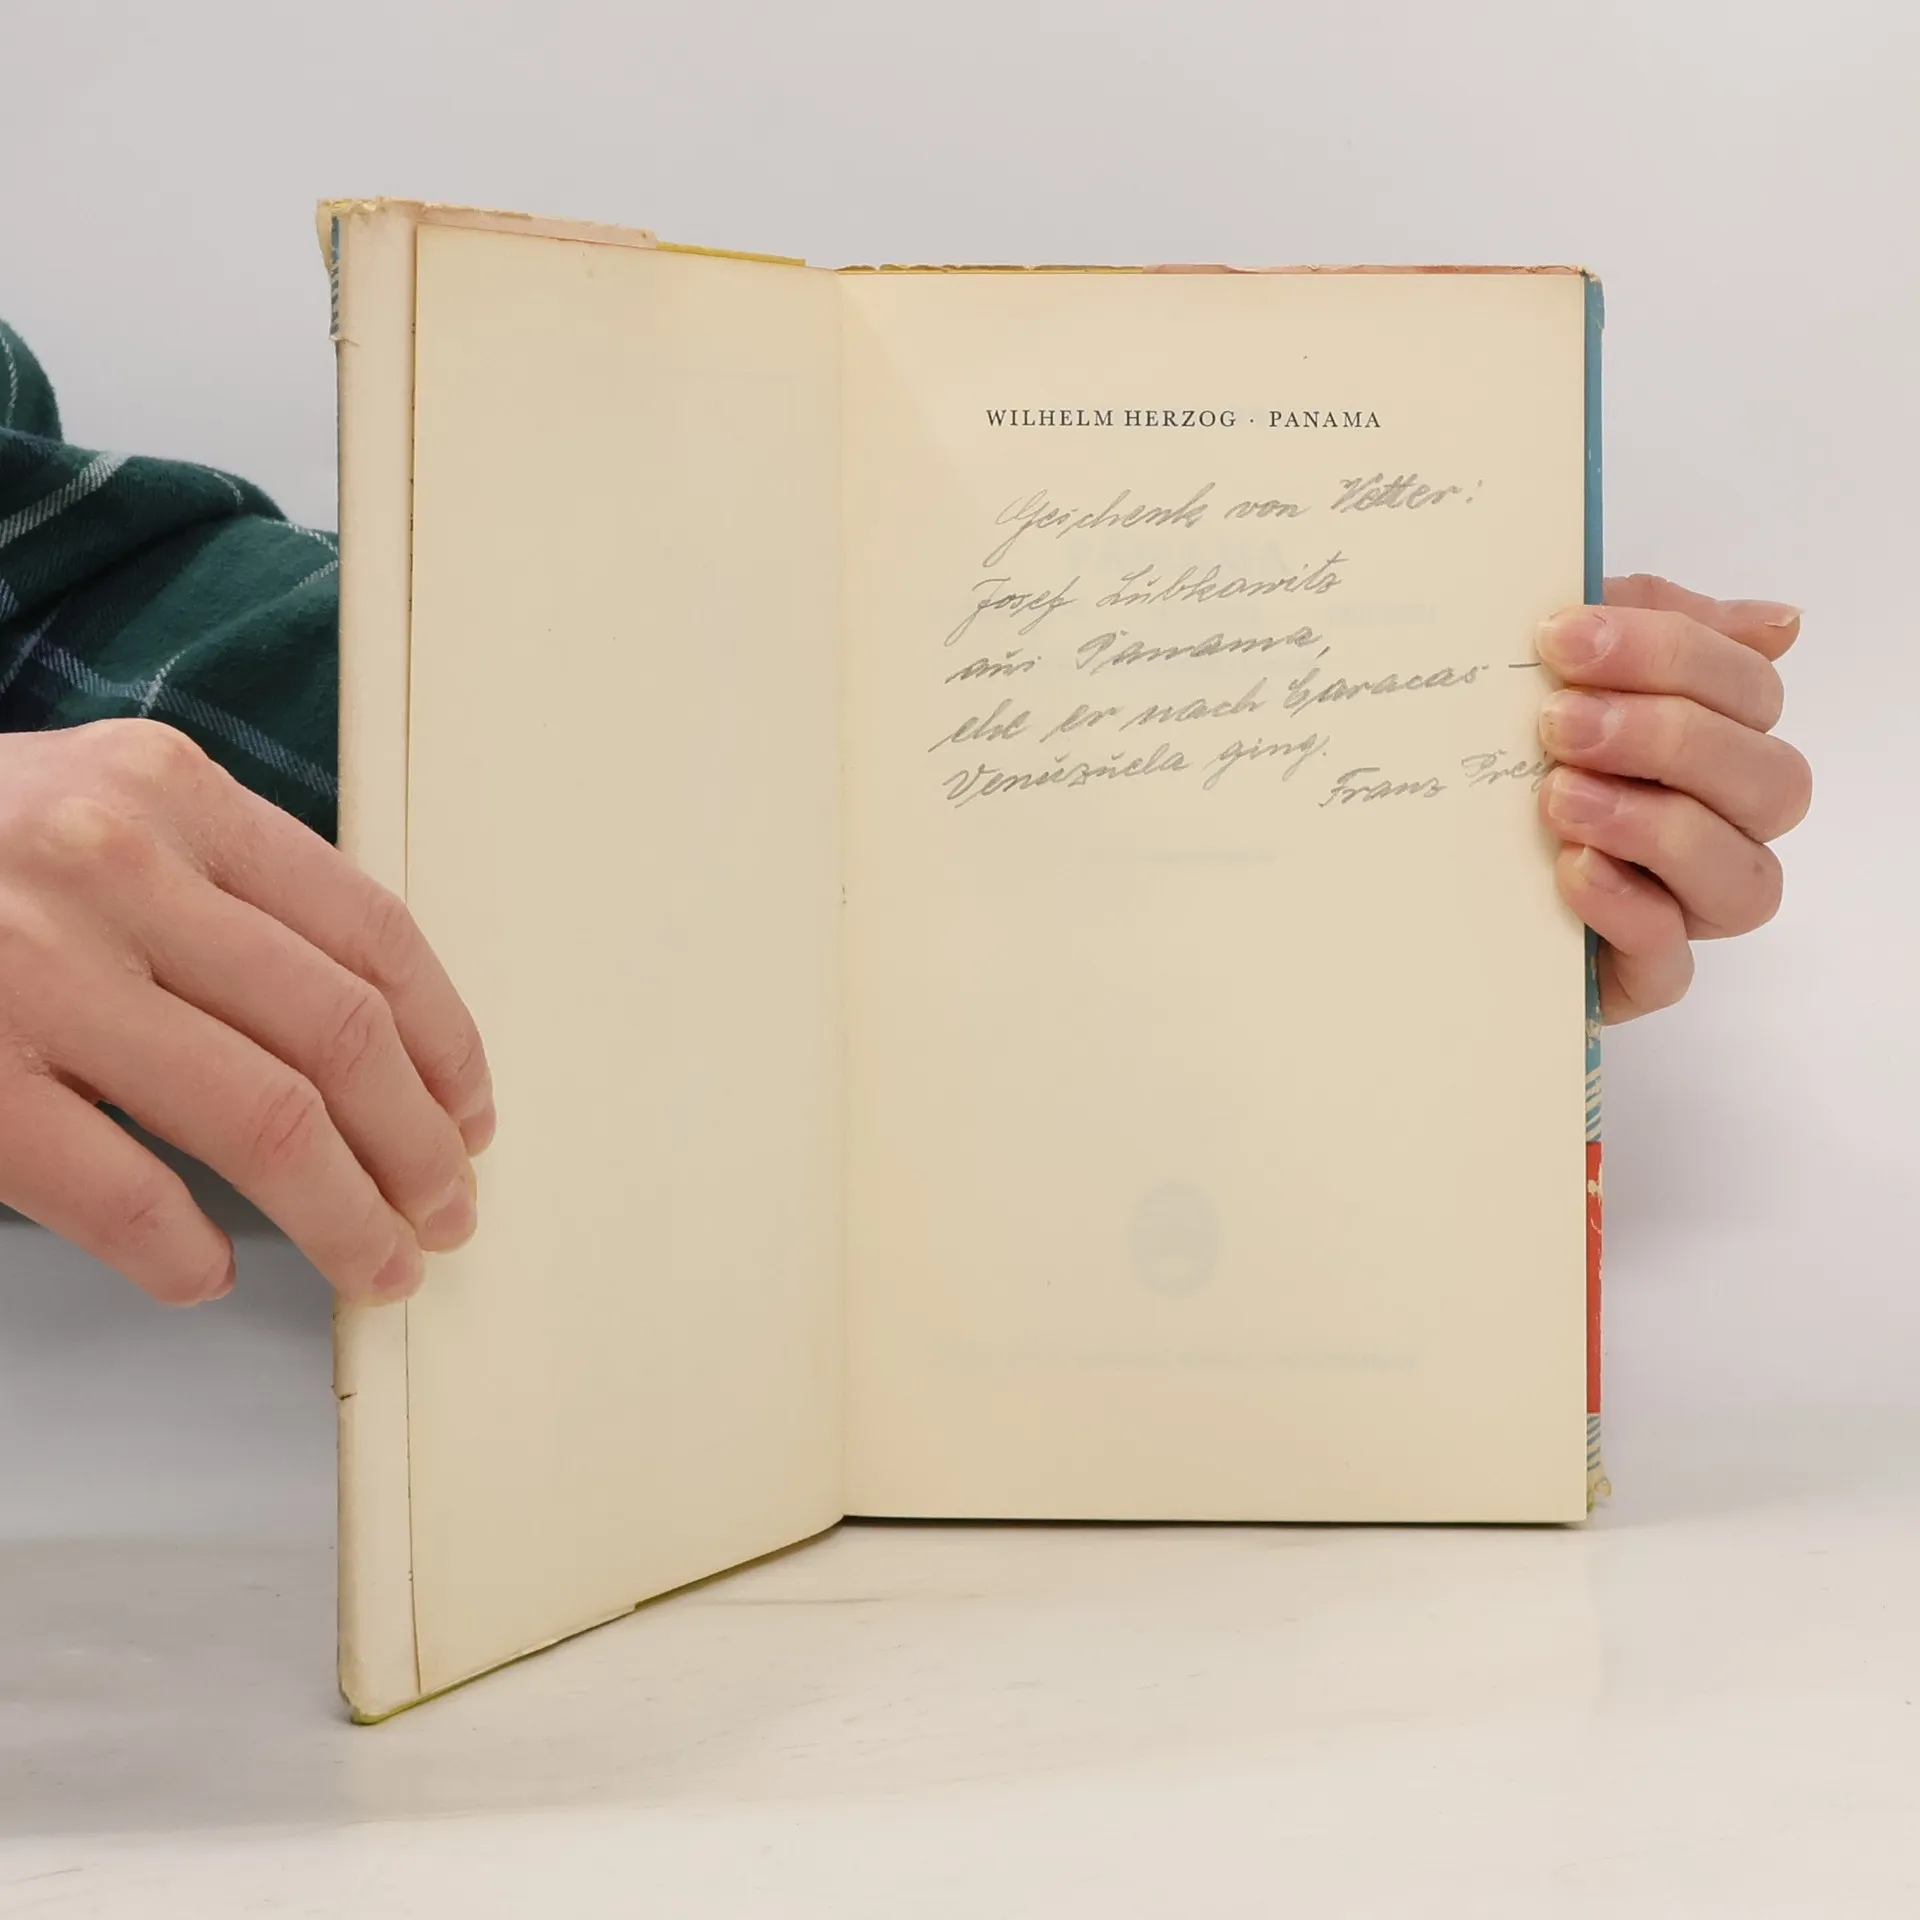 WILHELM HERZOG · PANAMA
Geschenk von Vetter:
Josef Lubkowitz
aus Panama,
ehe er nach Caracas —
Venezuela ging.
Franz